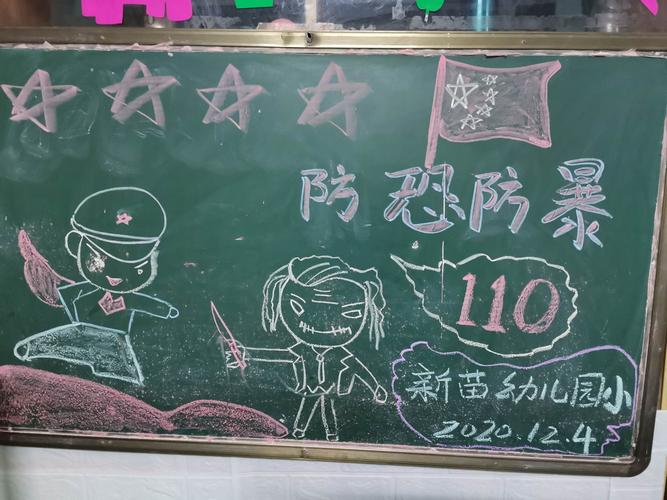 防恐防暴
110
新苗幼儿园小
2020.12.4